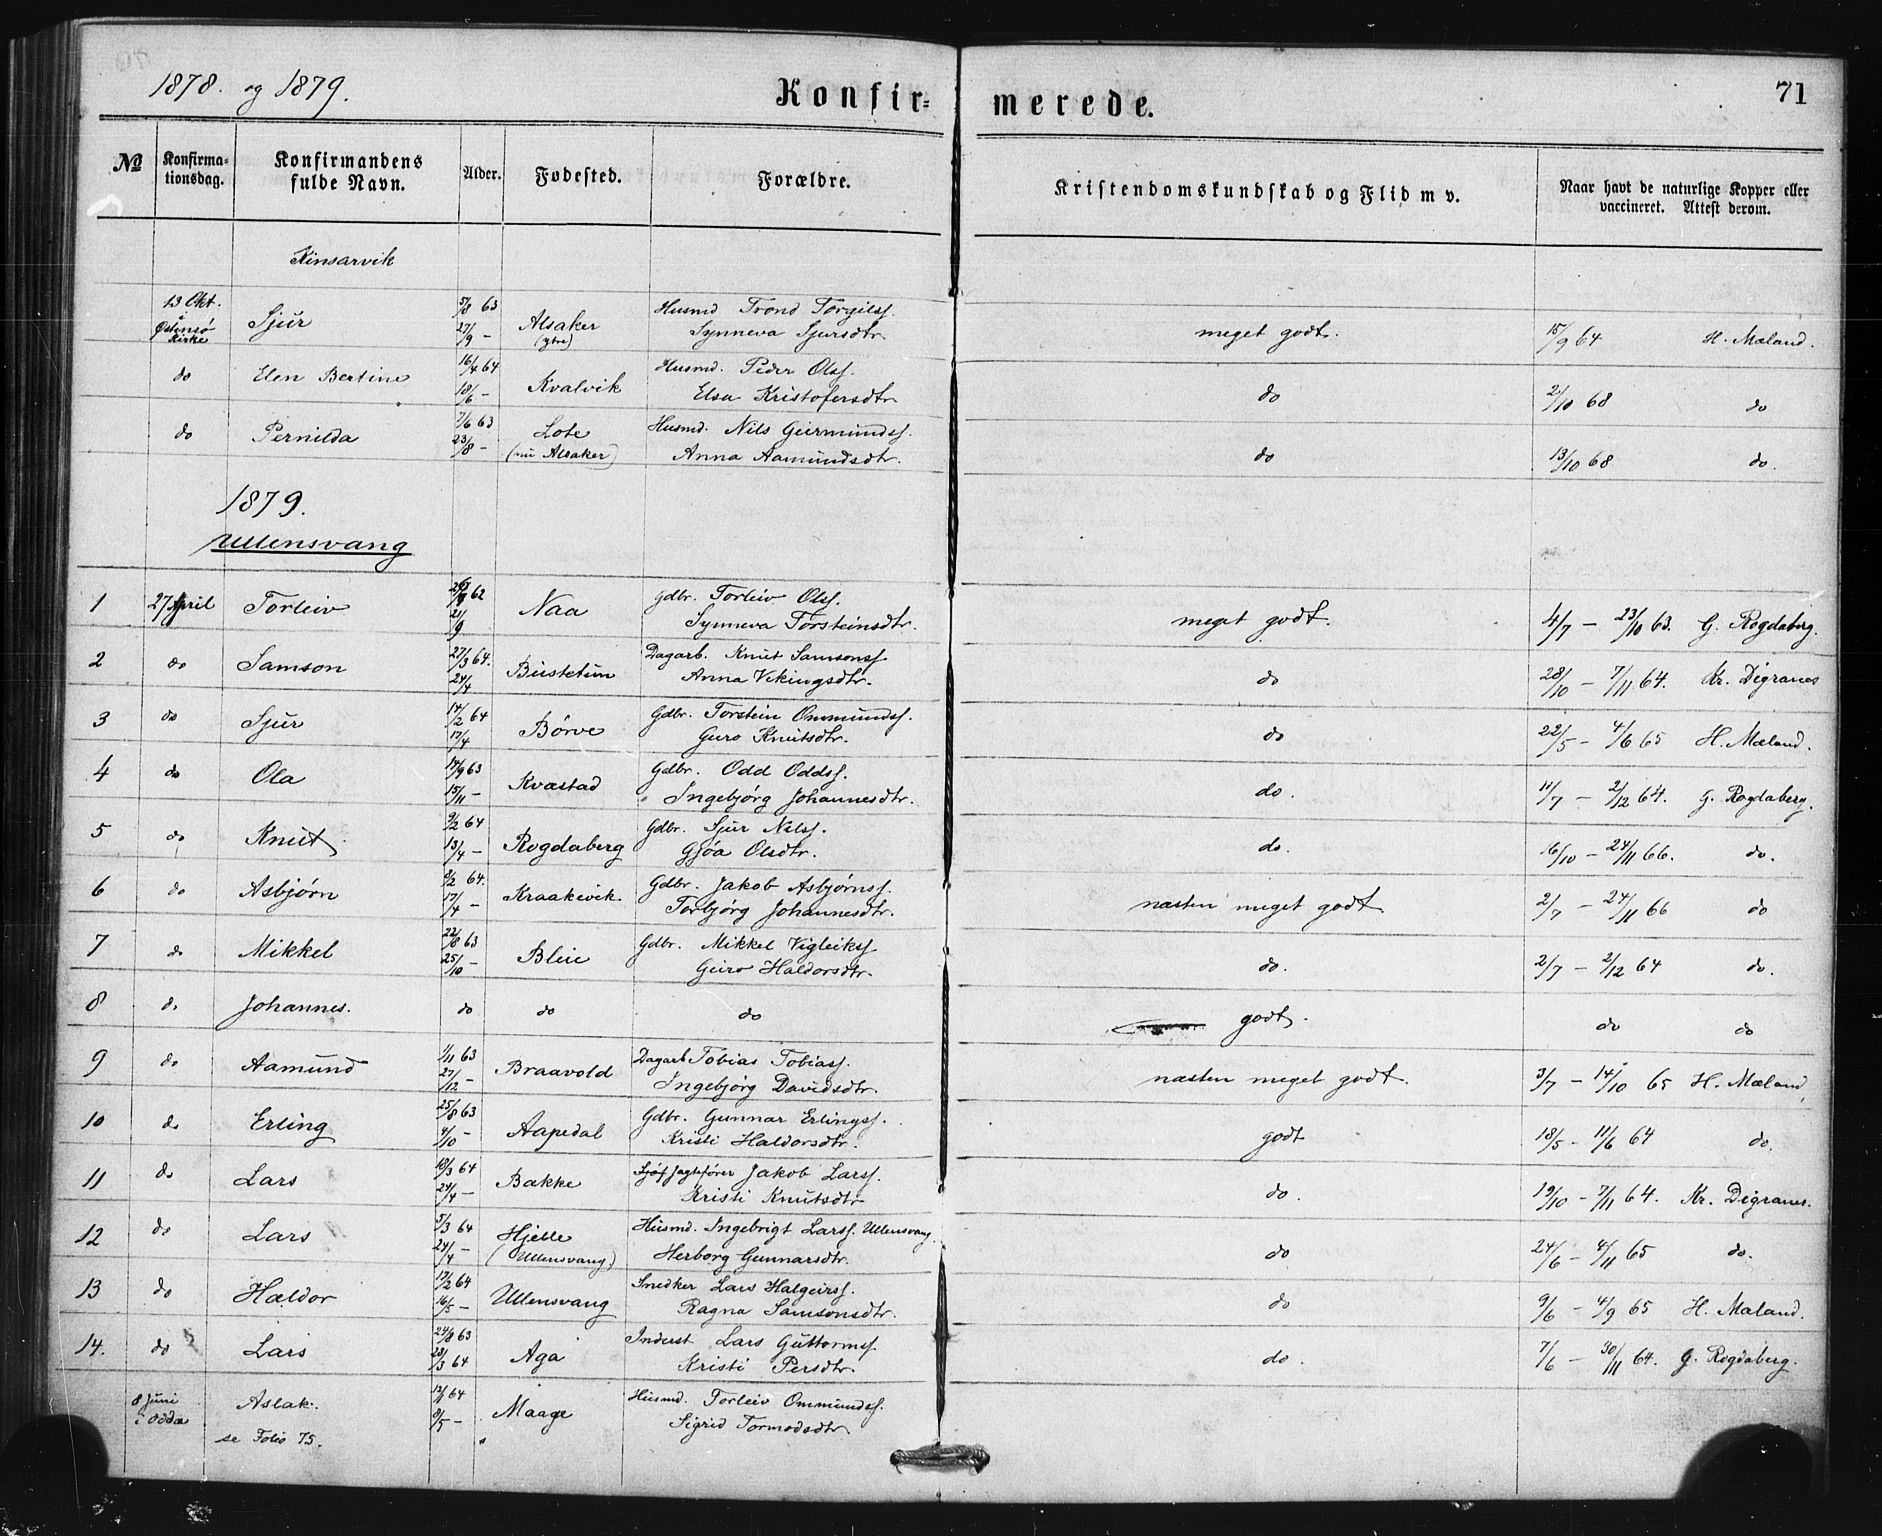 1878. og 1879.
Konfir=
merede.
71
№
Konfirma-
tionsdag.
Konfirmandens
fulde Navn.
Alder.
Fødested.
Forældre.
Kristendomskundskab og Flid m v.
Naar havt de naturlige Kopper eller
vaccineret. Attest derom.
Kinsarvik
13 Okt. 5/8 63 Husmd Trond Torgilsf.
i Østensø Kirke Sjur 27/9 – Alsaker (ytre) Synneva Sjursdtr. meget godt. 15/9 64 H. Mæland.
16/4 64 Husmd. Peder Olsf.
do Elen Bertine 18/6 – Kvalvik Elsa Kristofersdtr do 2/10 68 do
7/6 63 Lote Husmd. Nils Geirmundsf.
do Pernilda 23/8 – (nu Alsaker) Anna Aamundsdtr. do 13/10 68 do.
1879.
Ullensvang
62 Gdbr. Torleiv Olsf.
1 27 April Torleiv 21/9 Naa Synneva Torsteinsdtr. meget godt. 4/7 – 23/10 63. G. Rogdaberg.
27/3 64. Dagarb. Knut Samsonsf
2 do Samson 24/4 Bustetun Anna Vikingsdtr. do 28/10 – 7/11 64. Kr. Digranes
14/2 64 Gdbr. Torstein Ommundsf.
3 do Sjur 17/4 Børve Guro Knutsdtr. do 22/5 – 4/6 65 H. Mæland.
14/9 63 Gdbr. Odd Oddsf.
4 do Ola 15/11 – Kvæstad Ingebjørg Johannesdtr. do. 11/7 – 2/12 64. G. Rogdaberg.
9/2 64 Gdbr. Sjur Nilsf.
5 do Knut 13/4 – Rogdaberg Gjøa Olsdtr. do. 16/10 – 24/11 66. do.
8/2 64. Gdbr. Jakob Asbjørnsf.
6 do Asbjørn 17/4 – Kraakevik Torbjørg Johannesdtr. næsten meget godt 2/7 – 24/11 66 do
22/8 63 Gdbr. Mikkel Vigleiksf
7 do Mikkel 25/10 – Bleie Guro Haldorsdtr. do. 2/7 – 2/12 64 do.
8 do Johannes. do do do godt. do do
1/11 63 Dagarb Tobias Tobiasf.
9 do Aamund 27/12 – Braavold Ingebjørg Davidsdtr. næsten meget godt. 3/7 – 14/10 65 H. Mæland,
25/8 63 Gdbr. Gunnar Erlingsf.
10 do Erling 4/10 – Aapedal Kristi Haldorsdtr. godt 18/5 – 11/6 64 do.
18/3 64 Jagtefører Jakob Larsf.
11 do Lars 24/4 – Bakke Kristi Knutsdtr do. 19/10 – 7/11 64. Kr. Digranes.
5/3 64 Husmd. Ingebrigt Larsf. Ullensvang.
12 do Lars 24/4 – Hjelle (Ullensvang) Herborg Gunnarsdtr. do 24/6 – 4/11 65 do.
17/2 64 Snedker Lars Halgeirsf.
13 do Haldor 16/5 – Ullensvang Ragna Samsonsdtr. do 9/6 – 4/9 65 H. Mæland.
24/8 63 Inderst Lars Guttormsf.
14. do Lars 28/3 64 Aga Kristi Persdtr. do. 7/6 – 30/11 64. G. Rogdaberg.
64 Husmd. Torleiv Ommundsf.
8 Juni i Odda Aslak. 8/5 – Maage Sigrid Tormodsdtr
se Folio 75.